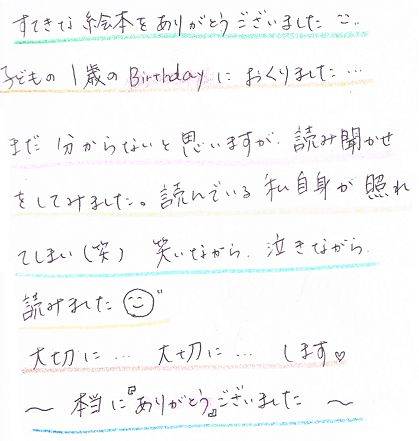 すてきな絵本をありがとうございました ◡̈..
子どもの1歳のBirthdayにおくりました…
まだ分からないと思いますが、読み聞かせ
をしてみました。読んでいる私自身が照れ
てしまい(笑) 笑いながら、泣きながら、
読みました☺"
大切に… 大切に… します♡
～ 本当に『ありがとう』ございました ～